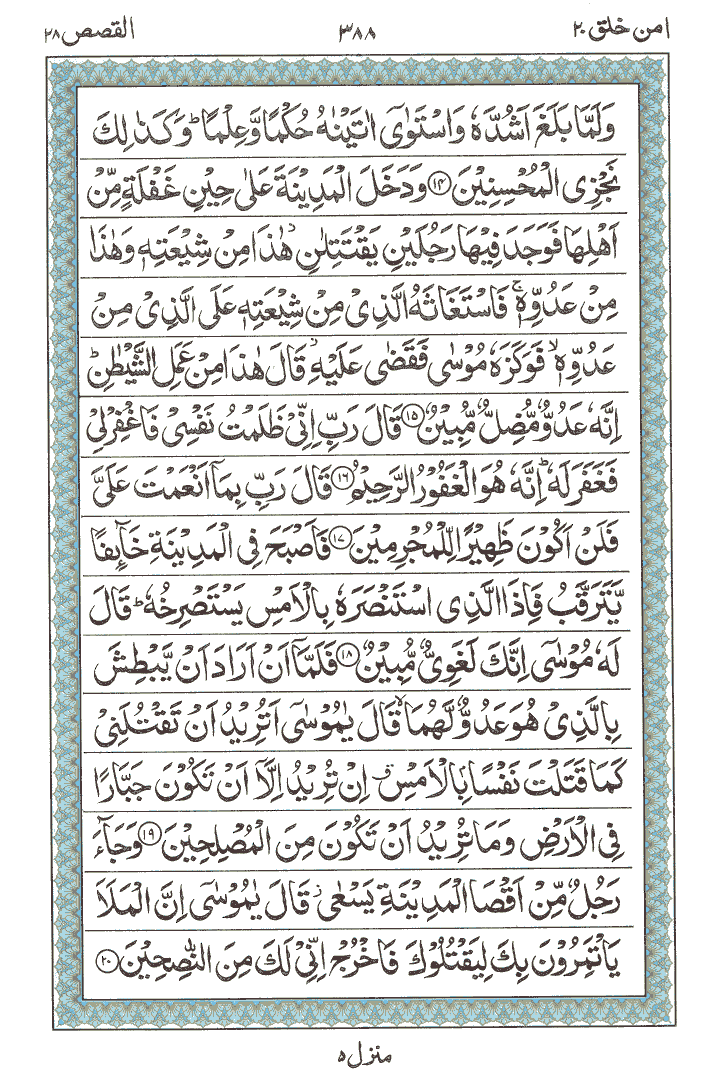 امن خلق ۲۰ ۳۸۸ القصص ۲۸
وَلَمَّا بَلَغَ اَشُدَّهٗ وَاسْتَوٰۤى اٰتَيْنٰهُ حُكْمًا وَّعِلْمًا ؕ وَكَذٰلِكَ
نَجْزِى الْمُحْسِنِيْنَ ﴿۱۴﴾ وَدَخَلَ الْمَدِيْنَةَ عَلٰى حِيْنِ غَفْلَةٍ مِّنْ
اَهْلِهَا فَوَجَدَ فِيْهَا رَجُلَيْنِ يَقْتَتِلٰنِ ۫ هٰذَا مِنْ شِيْعَتِهٖ وَهٰذَا
مِنْ عَدُوِّهٖ ۚ فَاسْتَغَاثَهُ الَّذِىْ مِنْ شِيْعَتِهٖ عَلَى الَّذِىْ مِنْ
عَدُوِّهٖ ۙ فَوَكَزَهٗ مُوْسٰى فَقَضٰى عَلَيْهِ ؗ قَالَ هٰذَا مِنْ عَمَلِ الشَّيْطٰنِ ؕ
اِنَّهٗ عَدُوٌّ مُّضِلٌّ مُّبِيْنٌ ﴿۱۵﴾ قَالَ رَبِّ اِنِّىْ ظَلَمْتُ نَفْسِىْ فَاغْفِرْ لِىْ
فَغَفَرَ لَهٗ ؕ اِنَّهٗ هُوَ الْغَفُوْرُ الرَّحِيْمُ ﴿۱۶﴾ قَالَ رَبِّ بِمَاۤ اَنْعَمْتَ عَلَىَّ
فَلَنْ اَكُوْنَ ظَهِيْرًا لِّلْمُجْرِمِيْنَ ﴿۱۷﴾ فَاَصْبَحَ فِى الْمَدِيْنَةِ خَآئِفًا
يَّتَرَقَّبُ فَاِذَا الَّذِى اسْتَنْصَرَهٗ بِالْاَمْسِ يَسْتَصْرِخُهٗ ؕ قَالَ
لَهٗ مُوْسٰۤى اِنَّكَ لَغَوِىٌّ مُّبِيْنٌ ﴿۱۸﴾ فَلَمَّاۤ اَنْ اَرَادَ اَنْ يَّبْطِشَ
بِالَّذِىْ هُوَ عَدُوٌّ لَّهُمَا ۙ قَالَ يٰمُوْسٰۤى اَتُرِيْدُ اَنْ تَقْتُلَنِىْ
كَمَا قَتَلْتَ نَفْسًا بِالْاَمْسِ ۖ اِنْ تُرِيْدُ اِلَّاۤ اَنْ تَكُوْنَ جَبَّارًا
فِى الْاَرْضِ وَمَا تُرِيْدُ اَنْ تَكُوْنَ مِنَ الْمُصْلِحِيْنَ ﴿۱۹﴾ وَجَآءَ
رَجُلٌ مِّنْ اَقْصَا الْمَدِيْنَةِ يَسْعٰى ؗ قَالَ يٰمُوْسٰۤى اِنَّ الْمَلَاَ
يَاْتَمِرُوْنَ بِكَ لِيَقْتُلُوْكَ فَاخْرُجْ اِنِّىْ لَكَ مِنَ النّٰصِحِيْنَ ﴿۲۰﴾
منزل ۵